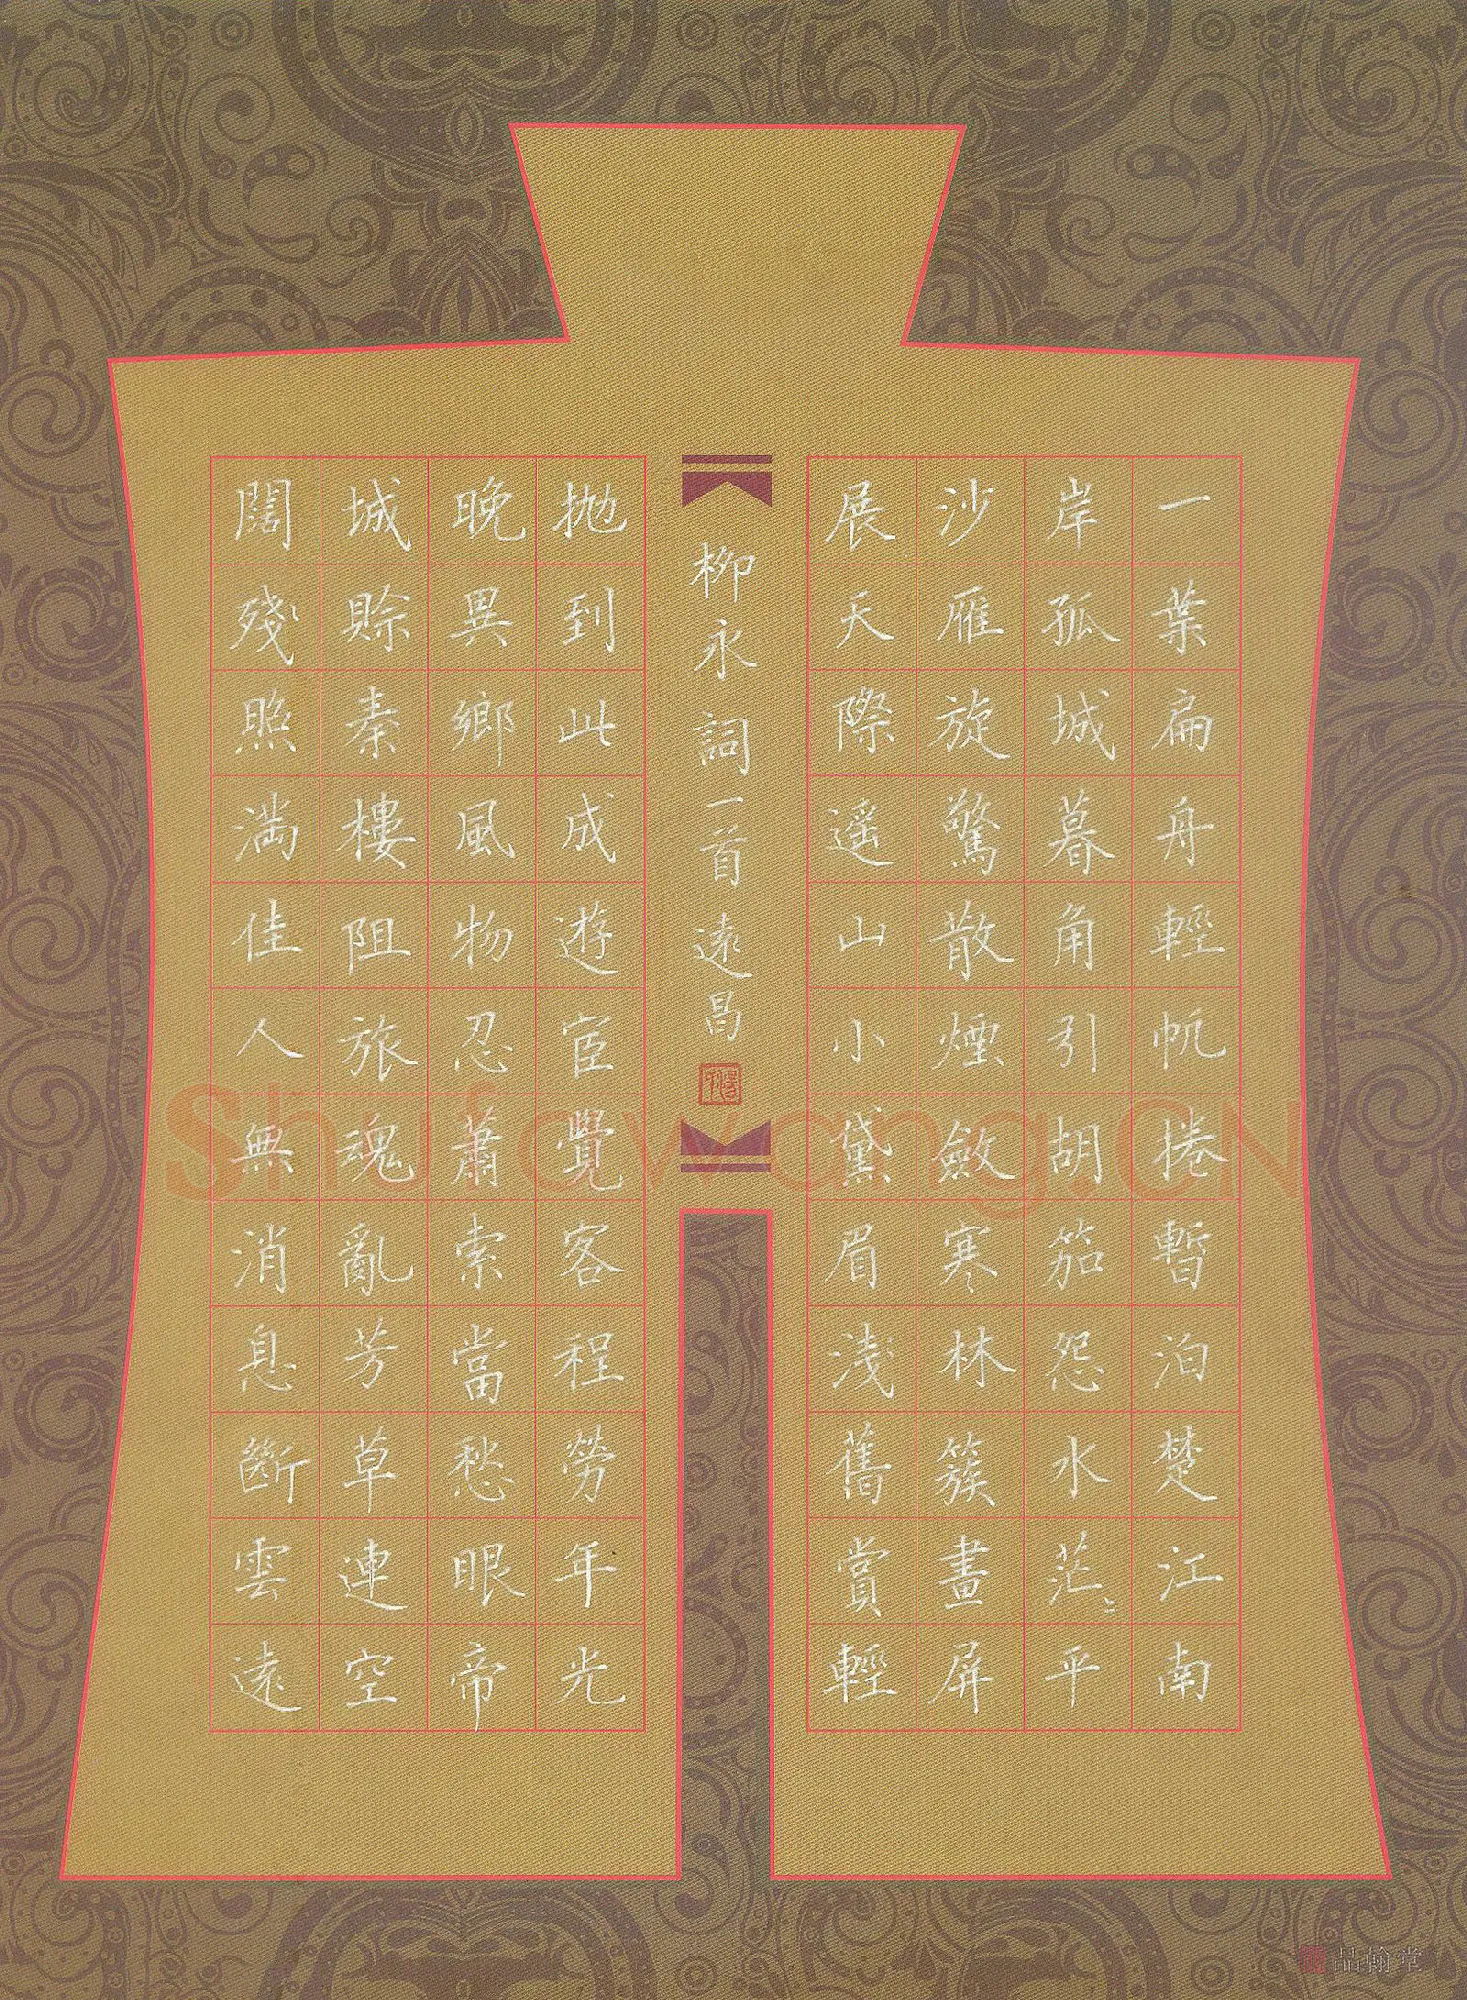 一葉扁舟輕帆捲暫泊楚江南
岸孤城暮角引胡笳怨水茫〻平
沙雁旋驚散煙斂寒林簇畫屏
展天際遥山小黛眉淺舊賞輕
抛到此成遊宦覺客程勞年光
晚異鄉風物忍蕭索當愁眼帝
城賒秦樓阻旅魂亂芳草連空
闊殘照滿佳人無消息斷雲遠
柳永詞一首遠昌
Shufawang.CN
品翰堂